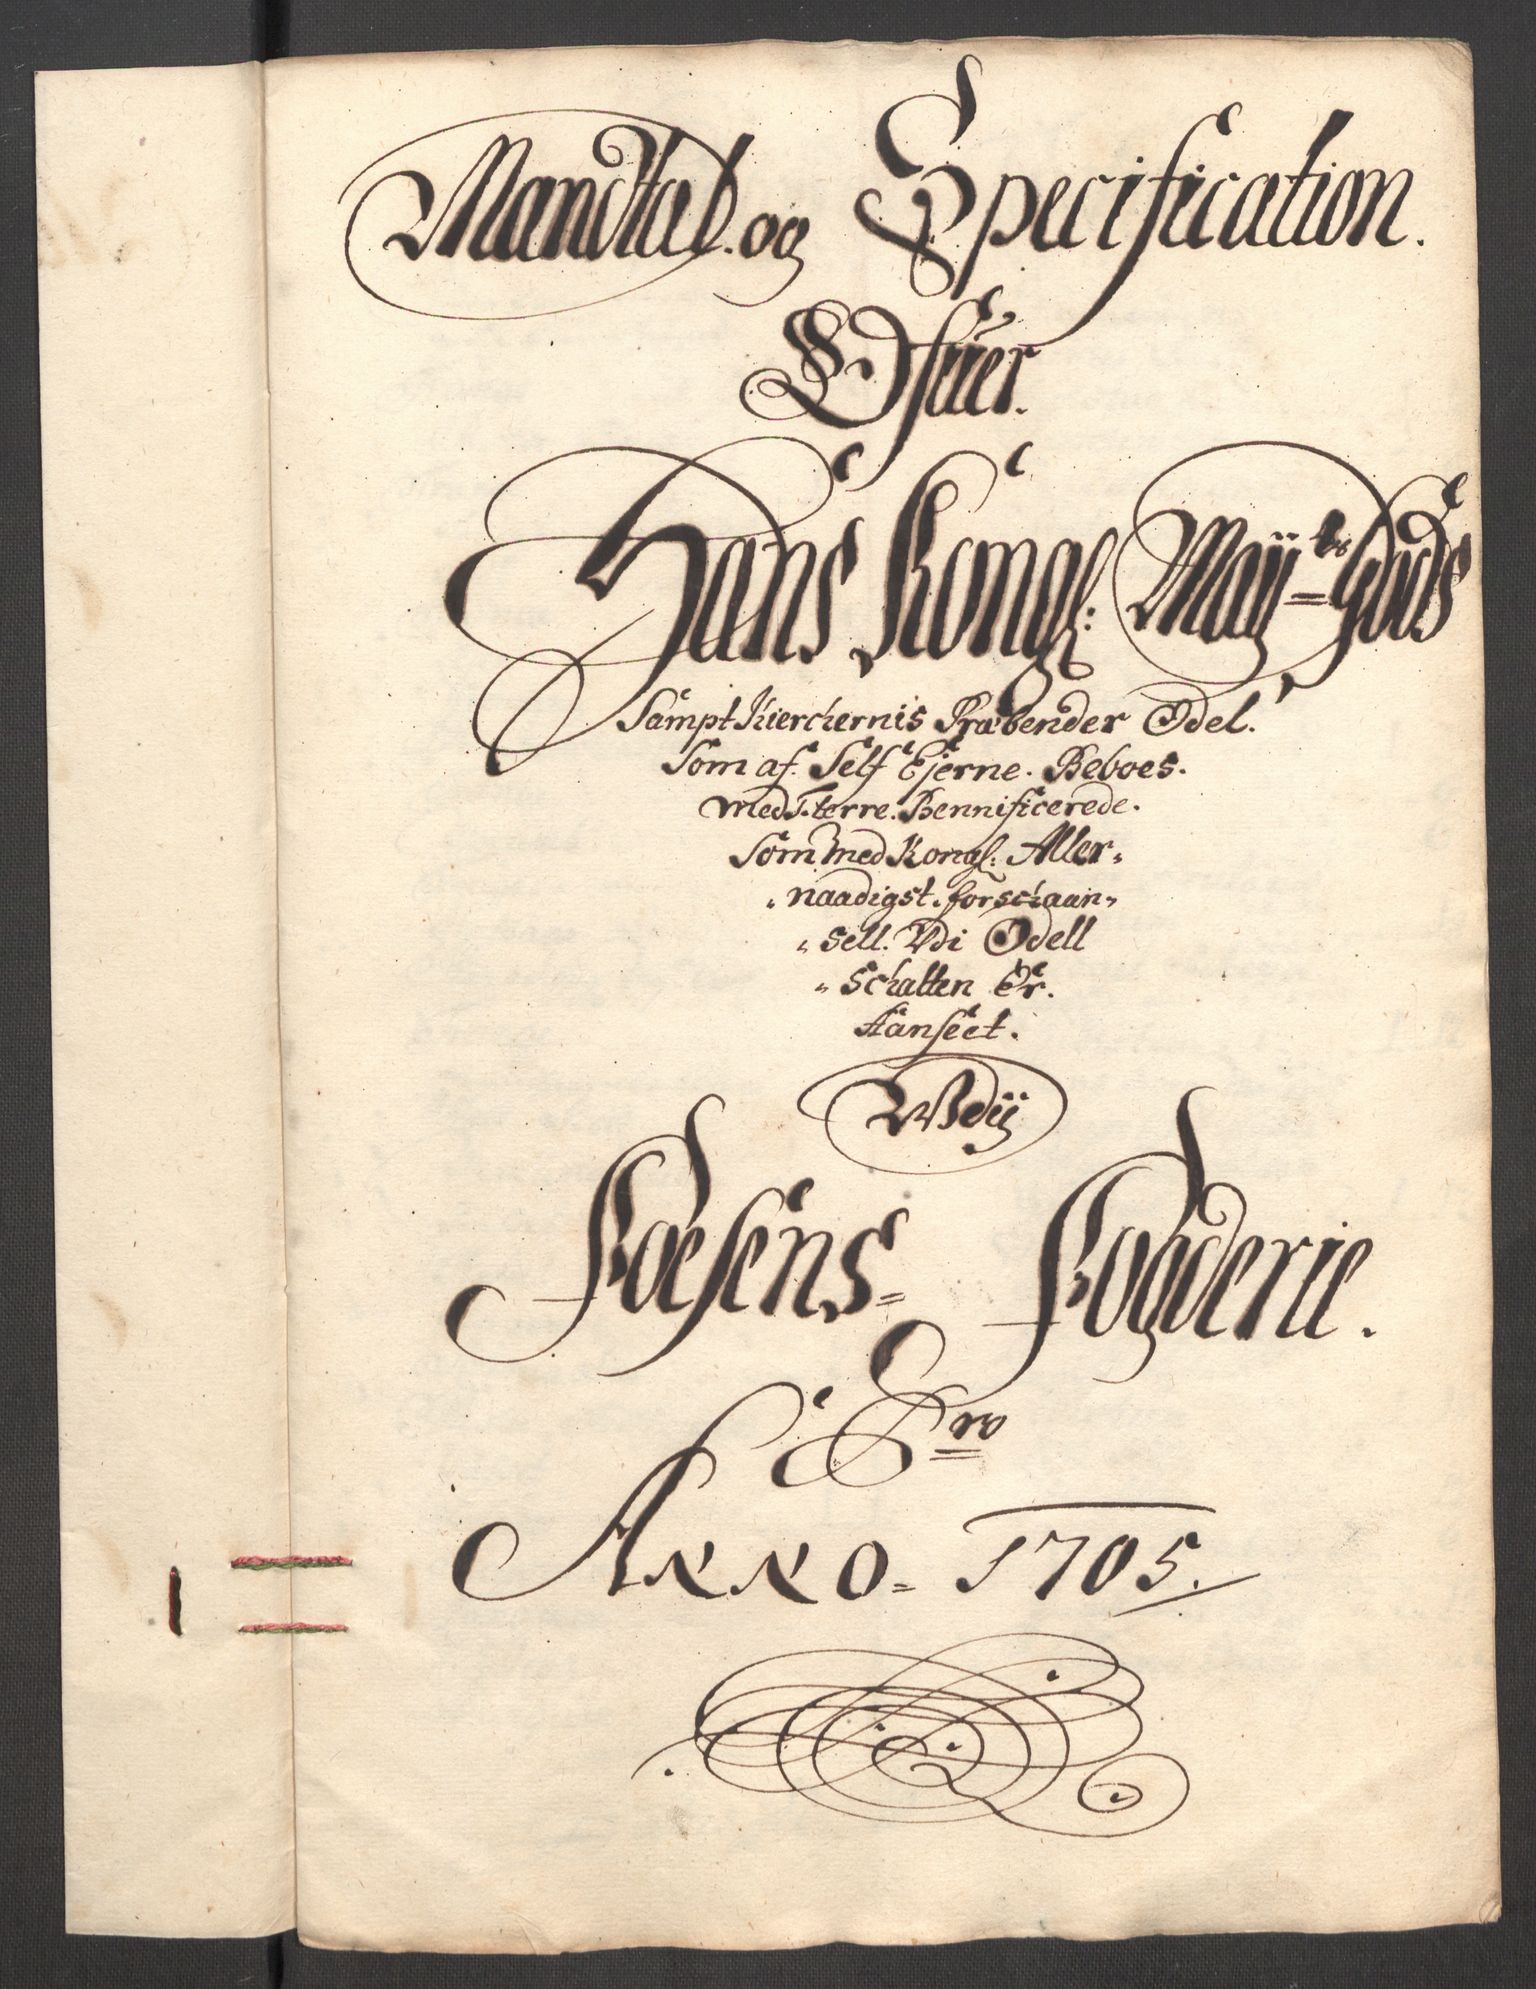 Mandtal. og Specification.
Ofuer.
Hans Kongl: Maÿ=ts Gods
Sampt Kierchernis Præbender Odel.
Som af. Self Ejerne. Beboes.
med Bennificerede.
Som med Kongl: Aller„
„naadigst. forschaan„
„sell. Vdi Odell
„Schatten Er.
Anseet.
Vdÿ
Foesens= Fogderie.
Pro
Anno= 1705.